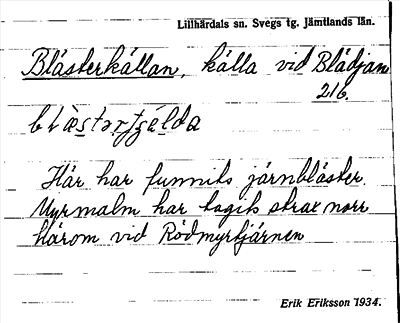 Lillhärdals sn. Svegs tg. Jämtlands län.
Blästerkällan, källa vid Blädjan
216.
Här har funnits järnbläster.
Myrmalm har tagits strax norr
härom vid Rödmyrtjärnen
Erik Eriksson 1934.